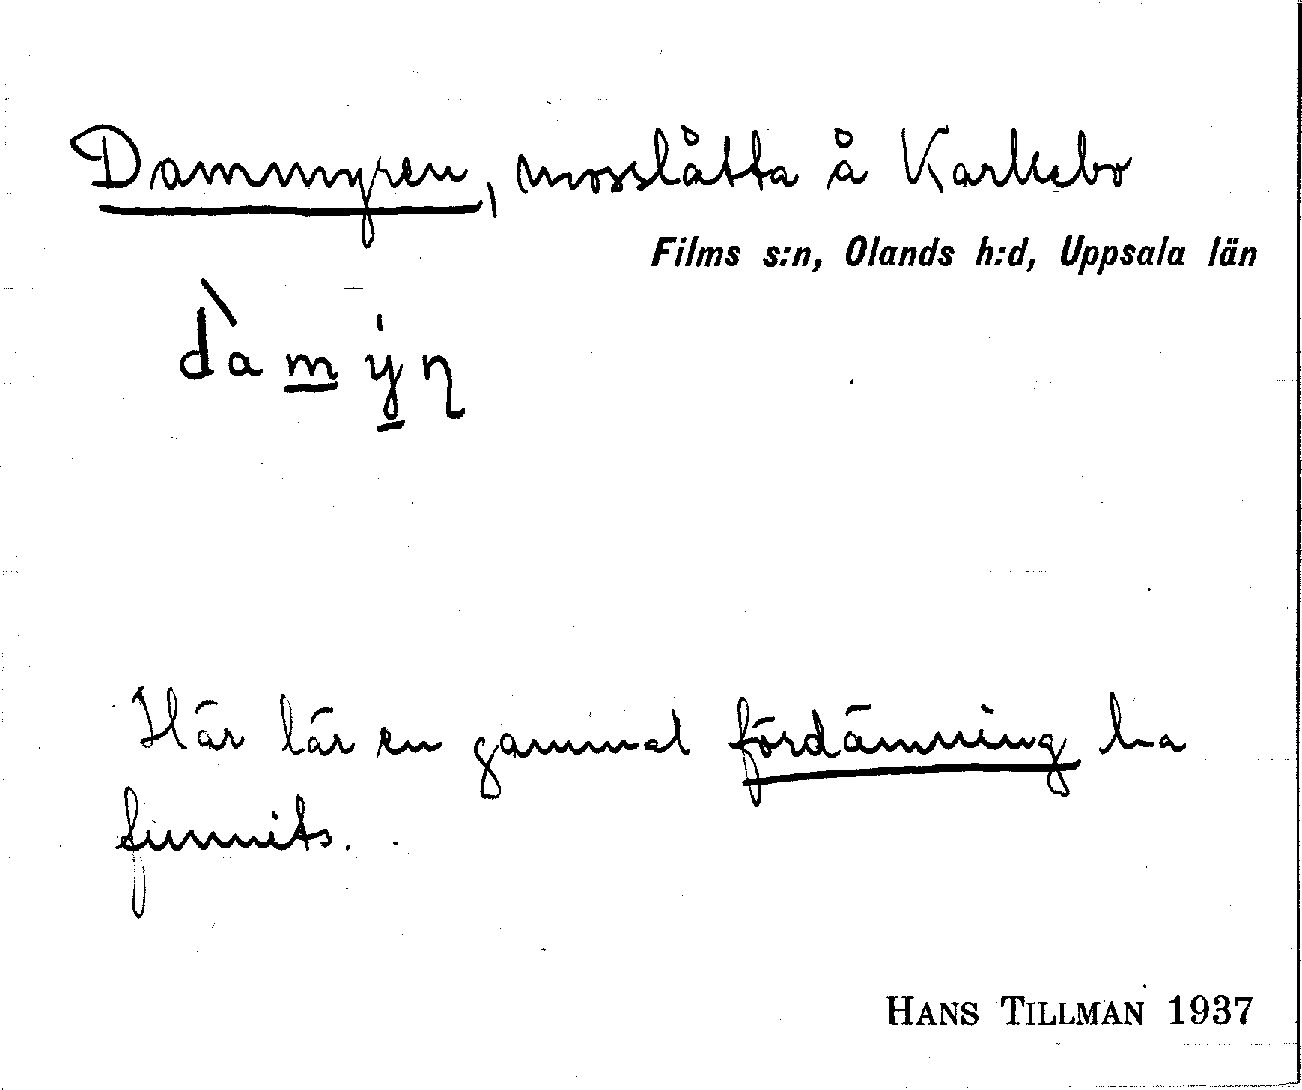 Dammyren, mosslåtta å Karllebo
Films s:n, Olands h:d, Uppsala län
dàmỳn
Här lär en gammal fördämning ha
funnits.
HANS TILLMAN 1937